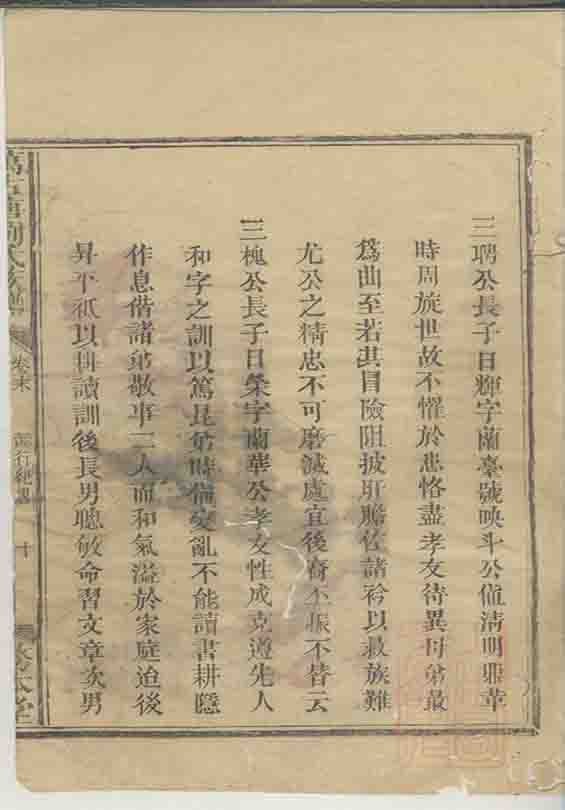 三聘公長子日輝字蘭臺號映斗公値清明鼎革
時周旋世故不懼於悲恪盡孝友待異母弟最
爲曲至若其冒險阻披肝膽佐諸衿以救族難
尤公之精忠不可磨滅處宜後裔不振不替云
三槐公長子日榮字蘭華公孝友性成克遵先人
和字之訓以篤昆弟時値変亂不能讀書耕隱
作息偕諸弟敬事二人而和氣溢於家庭迨後
昇平祇以耕讀訓後長男聰敏命習文章次男
劉氏族譜
卷末
行紀畧
十
敦本堂